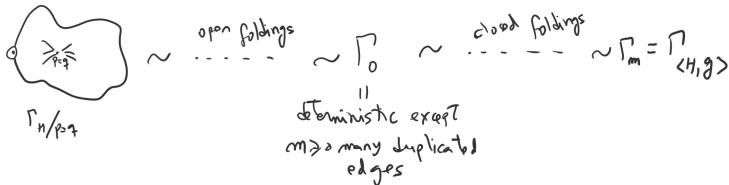 open foldings
closed foldings
p=q
~ ..... ~ Γ₀ ~ ..... ~ Γₘ = Γ_{<H,g>}
Γ_H/p=q
||
deterministic except
m≥0 many duplicated
edges